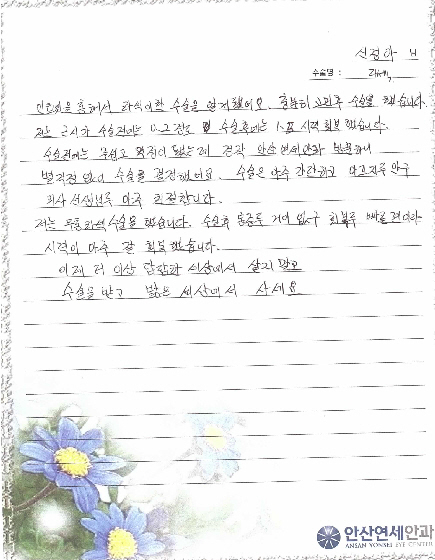 신정아 님
수술명 : 라섹
인터넷을 통해서 라식이란 수술을 알게됐어요. 충분히 고려후 수술을 했습니다.
저는 근시가 수술전에는 0.2 정도 수술후에는 1.0 시력 회복했습니다.
수술전에는 무섭고 걱정이 됐는데 결과 안산연세안과
별걱정 없이 수술을 결정했어요. 수술은 아주 간단하고
의사 선생님도 아주 친절합니다.
저는 무통라섹수술을 했습니다. 수술후 통증도 거의 없구 회복도 빠른편이라
시력이 아주 잘 회복했습니다.
이제 더 이상 답답한 세상에서 살지 말고
수술을 받고 밝은 세상에서 사세요
안산연세안과
ANSAN YONSEI EYE CENTER